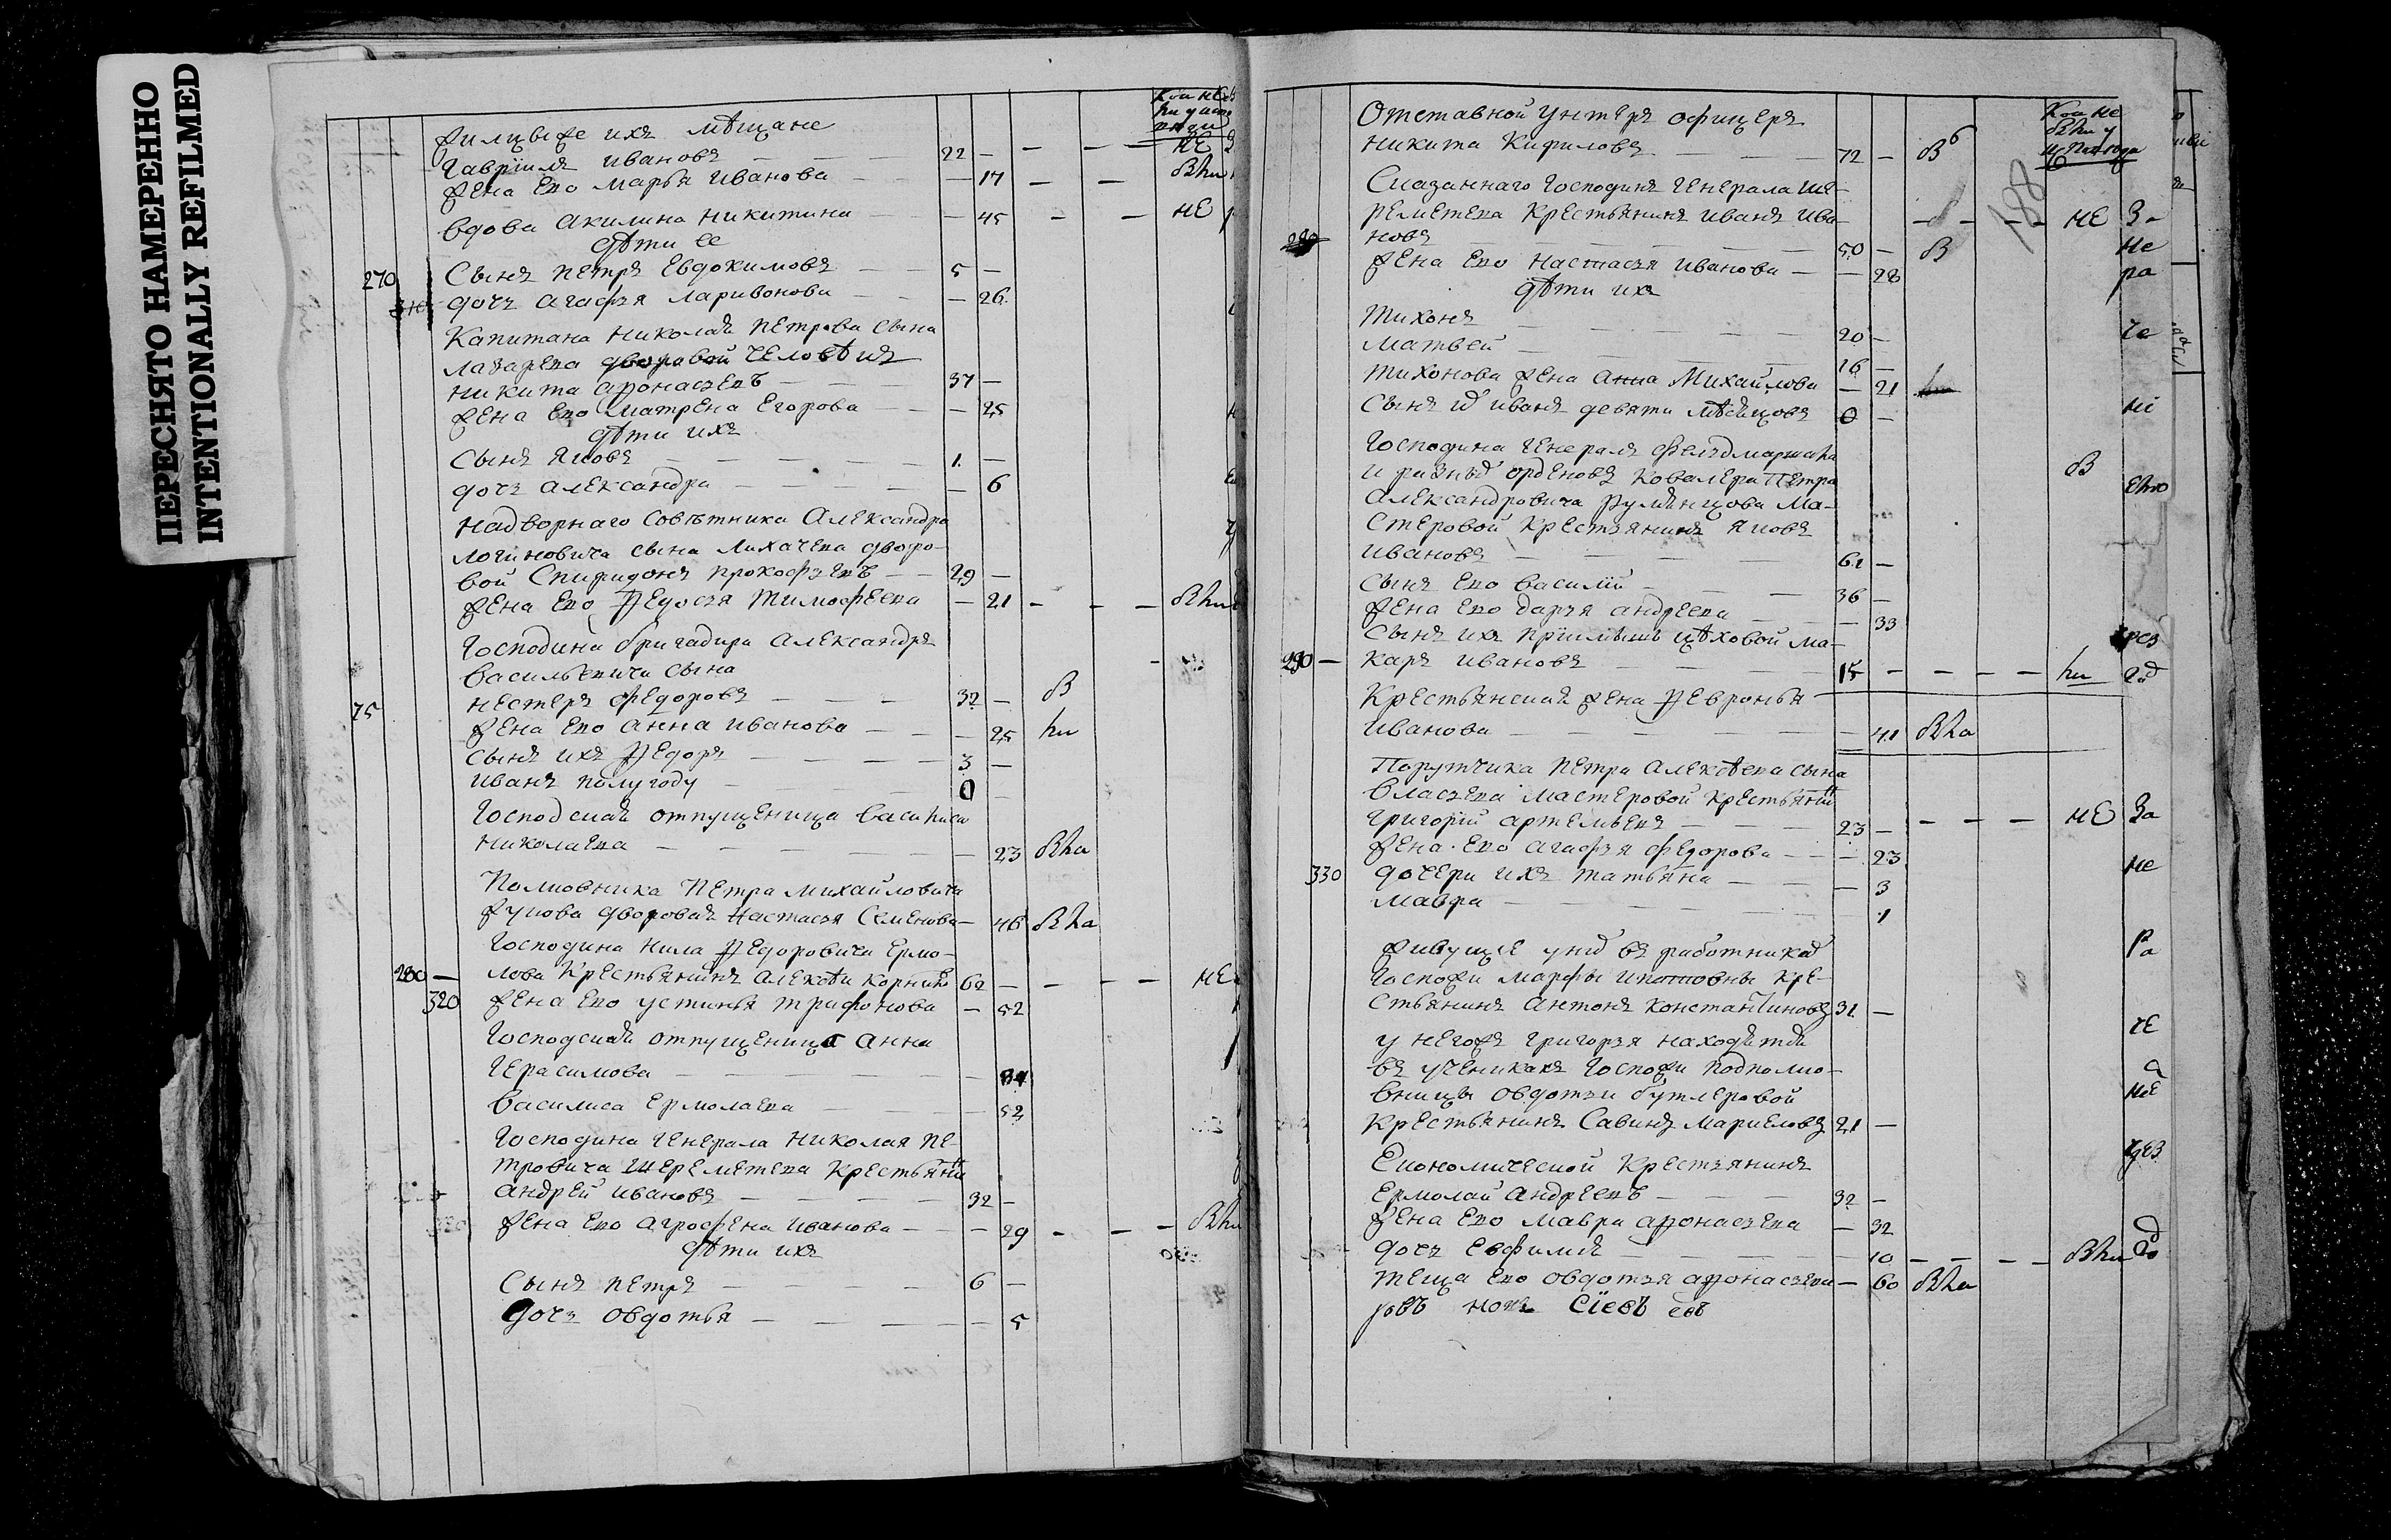 ПЕРЕСНЯТО НАМЕРЕННО
INTENTIONALLY REFILMED
жилцы же ихъ мѣщане
Гаврiилъ Ивановъ 22 — НЕ
жена Ево Марья Иванова — 17
вдова Акилина Никитина — 45 — — НЕ
дѣти ее
270 Сынъ Петръ Евдокимовъ 5 —
дочь Агафья Ларивонова — 26
Капитана Николая Петрова сына
Лазарева дворовой человѣкъ
Никита Афонасьевъ 37 —
жена Ево Матрена Егорова — 25
дѣти ихъ
Сынъ Яковъ 1 —
дочь Александра — 6
Надворнаго Совѣтника Александра
Логиновича сына Лихачева дворо-
вой Спиридонъ Прокофьевъ 29 —
жена Ево Федосья Тимофеева — 21
Господина бригадира Александра
Васильевича сына
75 Нестеръ Федоровъ 32 — В
жена Ево Анна Иванова — 25
Сынъ ихъ Федоръ 3 —
Иванъ полугоду 0 —
Господская отпущеница Василиса
Николаева — 23
Полковника Петра Михайловича
дворовая Настасья Семенова — 46
Господина Нила Федоровича Ермо-
280 — лова Крестьянинъ Алексѣй 62 — НЕ
320 жена Ево Устинья Трифонова — 52
Господская отпущеница Анна
Герасимова
Василиса Ермолаева — 52
Господина Генерала Николая Пе-
тровича Шереметева Крестьянинъ
Андрей Ивановъ 32 —
жена Ево Агрофена Иванова — 29
дѣти ихъ
Сынъ Петръ 6 —
дочь Овдотья — 5
Отставной Унтеръ офицеръ
Никита Кириловъ 72 — В
188
Сказаннаго Господина Генерала Ше-
реметева Крестьянинъ Иванъ Ива-
новъ 50 — В НЕ
жена Ево Настасья Иванова — 28
дѣти ихъ
Тихонъ 20 —
Матвей 16 —
Тихонова жена Анна Михайлова — 21
Сынъ их Иванъ девяти мѣсяцовъ 0 —
Господина Генералъ Фелдмаршала
и разных орденовъ Ковалера Петра
Александровича Румянцова Ма-
стеровой Крестьянинъ Яковъ
Ивановъ 61 —
Сынъ Ево Василiй 36 —
жена Ево Дарья Андреева — 33
Сынъ ихъ прiимышъ цѣховой Ма-
290 — каръ Ивановъ 15
Крестьянская жена Февронья
Иванова — 41
Порутчика Петра Алексѣева сына
Власьева мастеровой крестьянинъ
Григорiй Артемьевъ 23 — НЕ
жена Ево Агафья Федорова — 23
330 дочери ихъ Татьяна — 3
Мавра 1
живущие у них въ работниках
Госпожи Марфы Крe-
стьянинъ Антонъ Константиновъ 31 —
у негожъ Григорья находятся
въ ученикахъ Госпожи подполко-
вницы Овдотьи Бутлеровой
Крестьянинъ Савинъ 21 —
Економической Крестьянинъ
Ермолай Андреевъ 32 —
жена Ево Мавра Афонасьева — 32
дочь Евфимия — 10
теща Ево Овдотья Афонасьева — 60